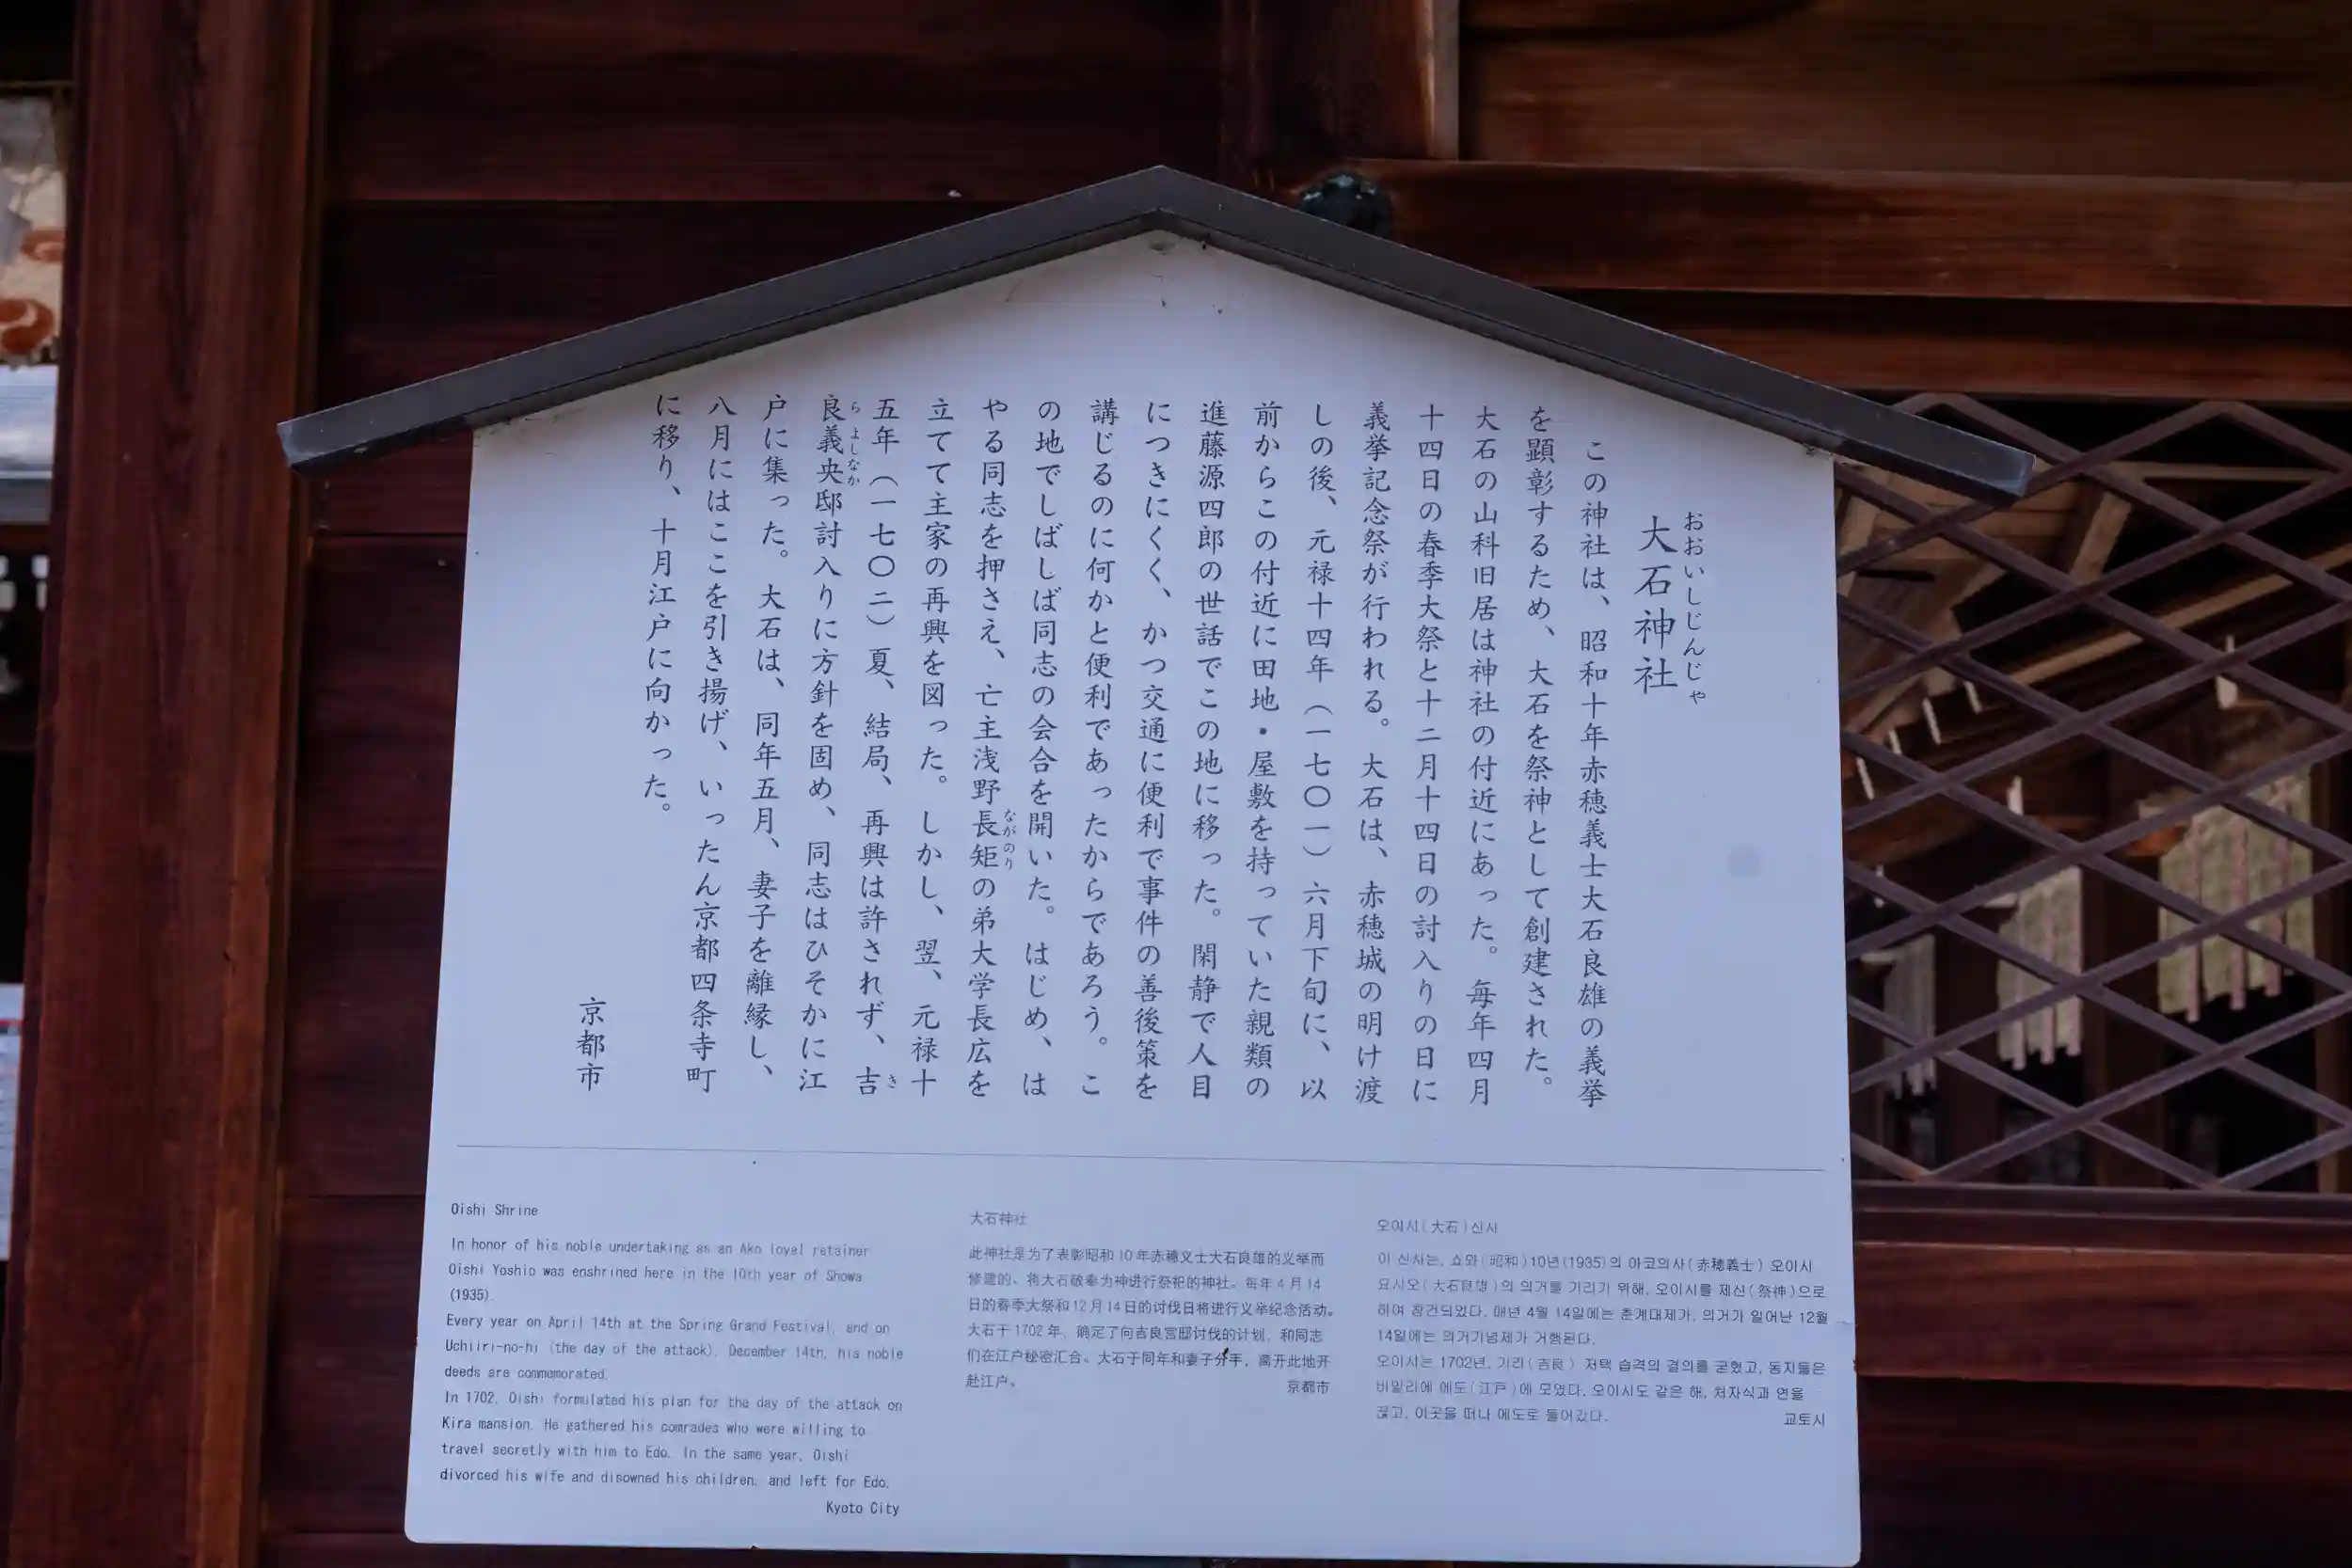 大石神社
おおいしじんじゃ
この神社は、昭和十年赤穂義士大石良雄の義挙
を顕彰するため、大石を祭神として創建された。
大石の山科旧居は神社の付近にあった。毎年四月
十四日の春季大祭と十二月十四日の討入りの日に
義挙記念祭が行われる。大石は、赤穂城の明け渡
しの後、元禄十四年（一七〇一）六月下旬に、以
前からこの付近に田地・屋敷を持っていた親類の
進藤源四郎の世話でこの地に移った。閑静で人目
につきにくく、かつ交通に便利で事件の善後策を
講じるのに何かと便利であったからであろう。こ
の地でしばしば同志の会合を開いた。はじめ、は
やる同志を押さえ、亡主浅野長矩の弟大学長広を
ながのり
立てて主家の再興を図った。しかし、翌、元禄十
五年（一七〇二）夏、結局、再興は許されず、吉
き
良義央邸討入りに方針を固め、同志はひそかに江
らよしなか
戸に集った。大石は、同年五月、妻子を離縁し、
八月にはここを引き揚げ、いったん京都四条寺町
に移り、十月江戸に向かった。
京都市
Oishi Shrine
In honor of his noble undertaking as an Ako loyal retainer
Oishi Yoshio was enshrined here in the 10th year of Showa
(1935).
Every year on April 14th at the Spring Grand Festival, and on
Uchiiri-no-hi (the day of the attack), December 14th, his noble
deeds are commemorated.
In 1702, Oishi formulated his plan for the day of the attack on
Kira mansion. He gathered his comrades who were willing to
travel secretly with him to Edo. In the same year, Oishi
divorced his wife and disowned his children, and left for Edo.
Kyoto City
大石神社
此神社是为了表彰昭和10年赤穗义士大石良雄的义举而
修建的、将大石敬奉为神进行祭祀的神社。每年4月14
日的春季大祭和12月14日的讨伐日将进行义举纪念活动。
大石于1702年，确定了向吉良宫邸讨伐的计划，和同志
们在江户秘密汇合。大石于同年和妻子分手，离开此地开
赴江户。
京都市
오이시(大石)신사
이 신사는, 쇼와(昭和)10년(1935)의 아코의사(赤穂義士) 오이시
요시오(大石良雄)의 의거를 기리기 위해, 오이시를 제신(祭神)으로
하여 창건되었다. 매년 4월 14일에는 춘계대제가, 의거가 일어난 12월
14일에는 의거기념제가 거행된다.
오이시는 1702년, 기라(吉良) 저택 습격의 결의를 굳혔고, 동지들은
비밀리에 에도(江戸)에 모였다. 오이시도 같은 해, 처자식과 연을
끊고, 이곳을 떠나 에도로 들어갔다.
교토시